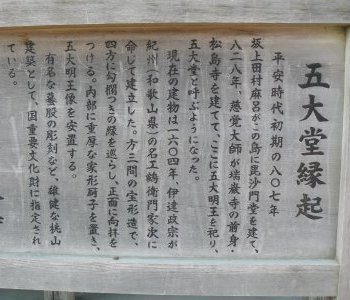 五大堂縁起
平安時代初期の八〇七年
坂上田村麻呂がこの島に毘沙門堂を建て、
八二八年、慈覚大師が瑞巌寺の前身・
松島寺を建てて、ここに五大明王を祀り、
五大堂と呼ぶようになった。
現在の建物は一六〇四年伊達政宗が
紀州(和歌山県)の名工鶴衛門家次に
命じて建立した。方三間の宝形造で、
四方に勾摺つきの縁を巡らし、正面に向拝を
つける。内部に重厚な家形厨子を置き、
五大明王像を安置する。
有名な蟇股の彫刻など、雄健な桃山
建築として、国重要文化財に指定され
ている。